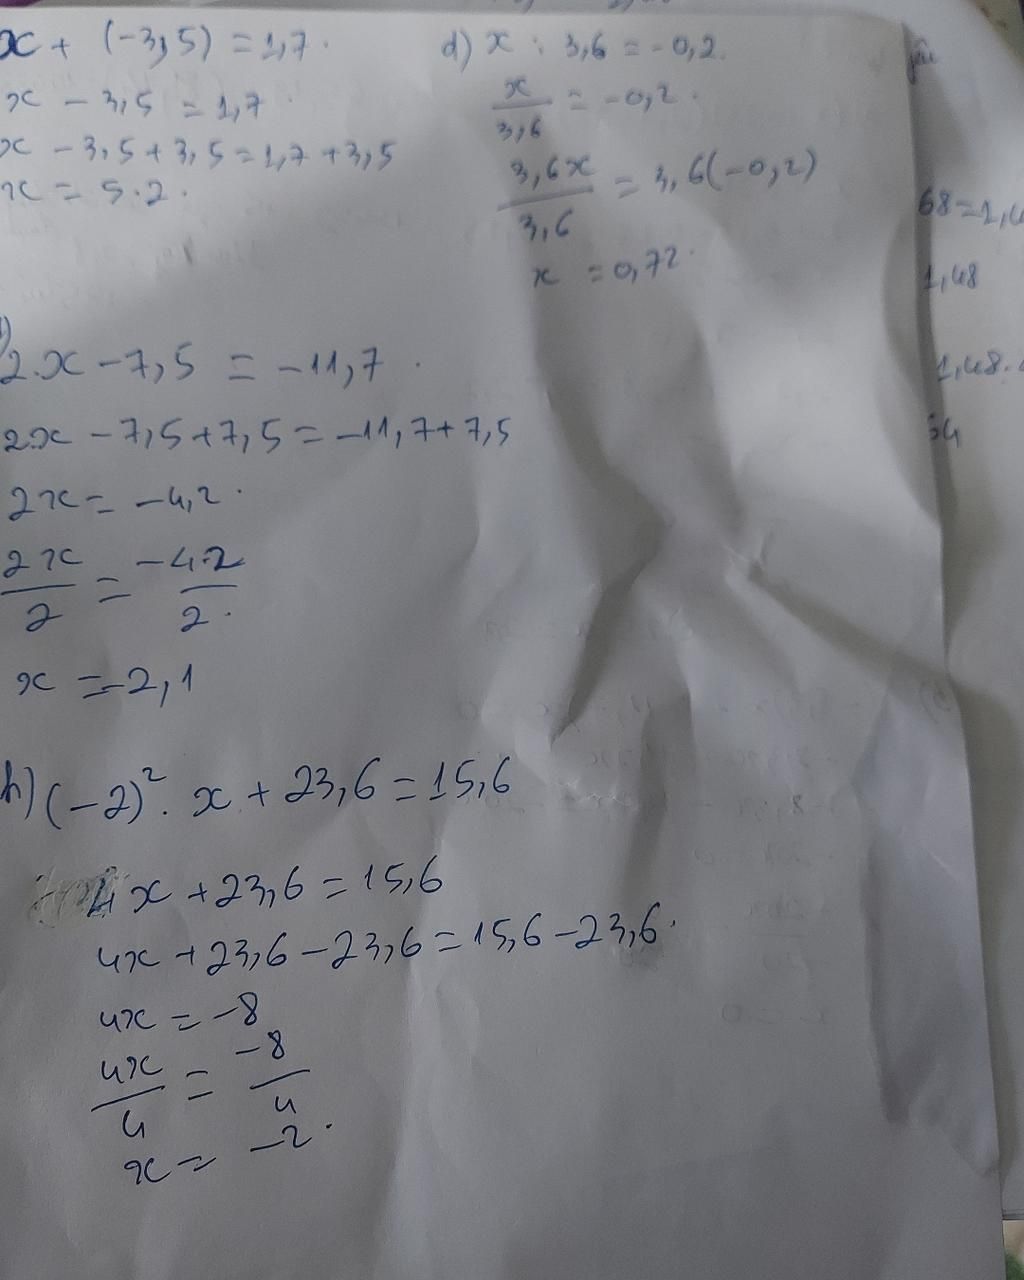 x + (-3,5) = 1,7.
x - 3,5 = 1,7
x - 3,5 + 3,5 = 1,7 + 3,5
x = 5.2.
d) x : 3,6 = -0,2.
x/3,6 = -0,2.
3,6x/3,6 = 3,6(-0,2)
x = 0,72.
2.x - 7,5 = -11,7.
2x - 7,5 + 7,5 = -11,7 + 7,5
2x = -4,2.
2x/2 = -4.2/2.
x = -2,1
h) (-2)². x + 23,6 = 15,6
4x + 23,6 = 15,6
4x + 23,6 - 23,6 = 15,6 - 23,6.
4x = -8
4x/4 = -8/4
x = -2.
1,48